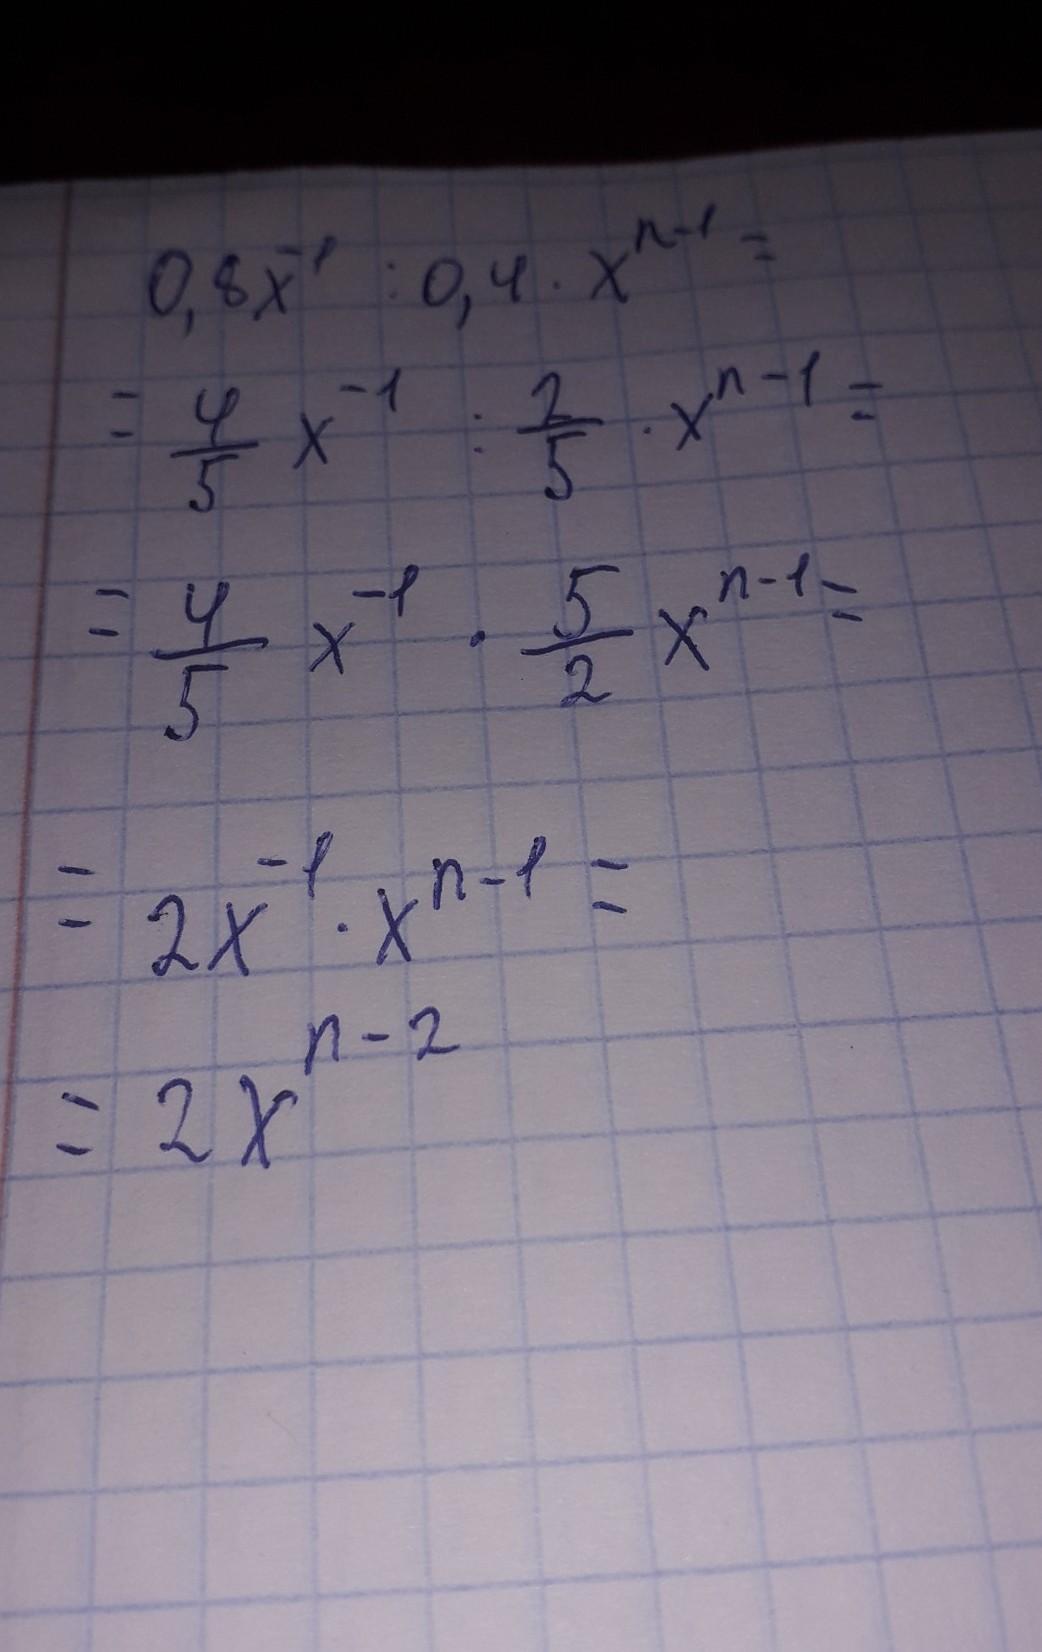 0,8x⁻¹ : 0,4 · xⁿ⁻¹ =
= 4/5 x⁻¹ : 2/5 · xⁿ⁻¹ =
= 4/5 x⁻¹ · 5/2 xⁿ⁻¹ =
= 2x⁻¹ · xⁿ⁻¹ =
= 2xⁿ⁻²